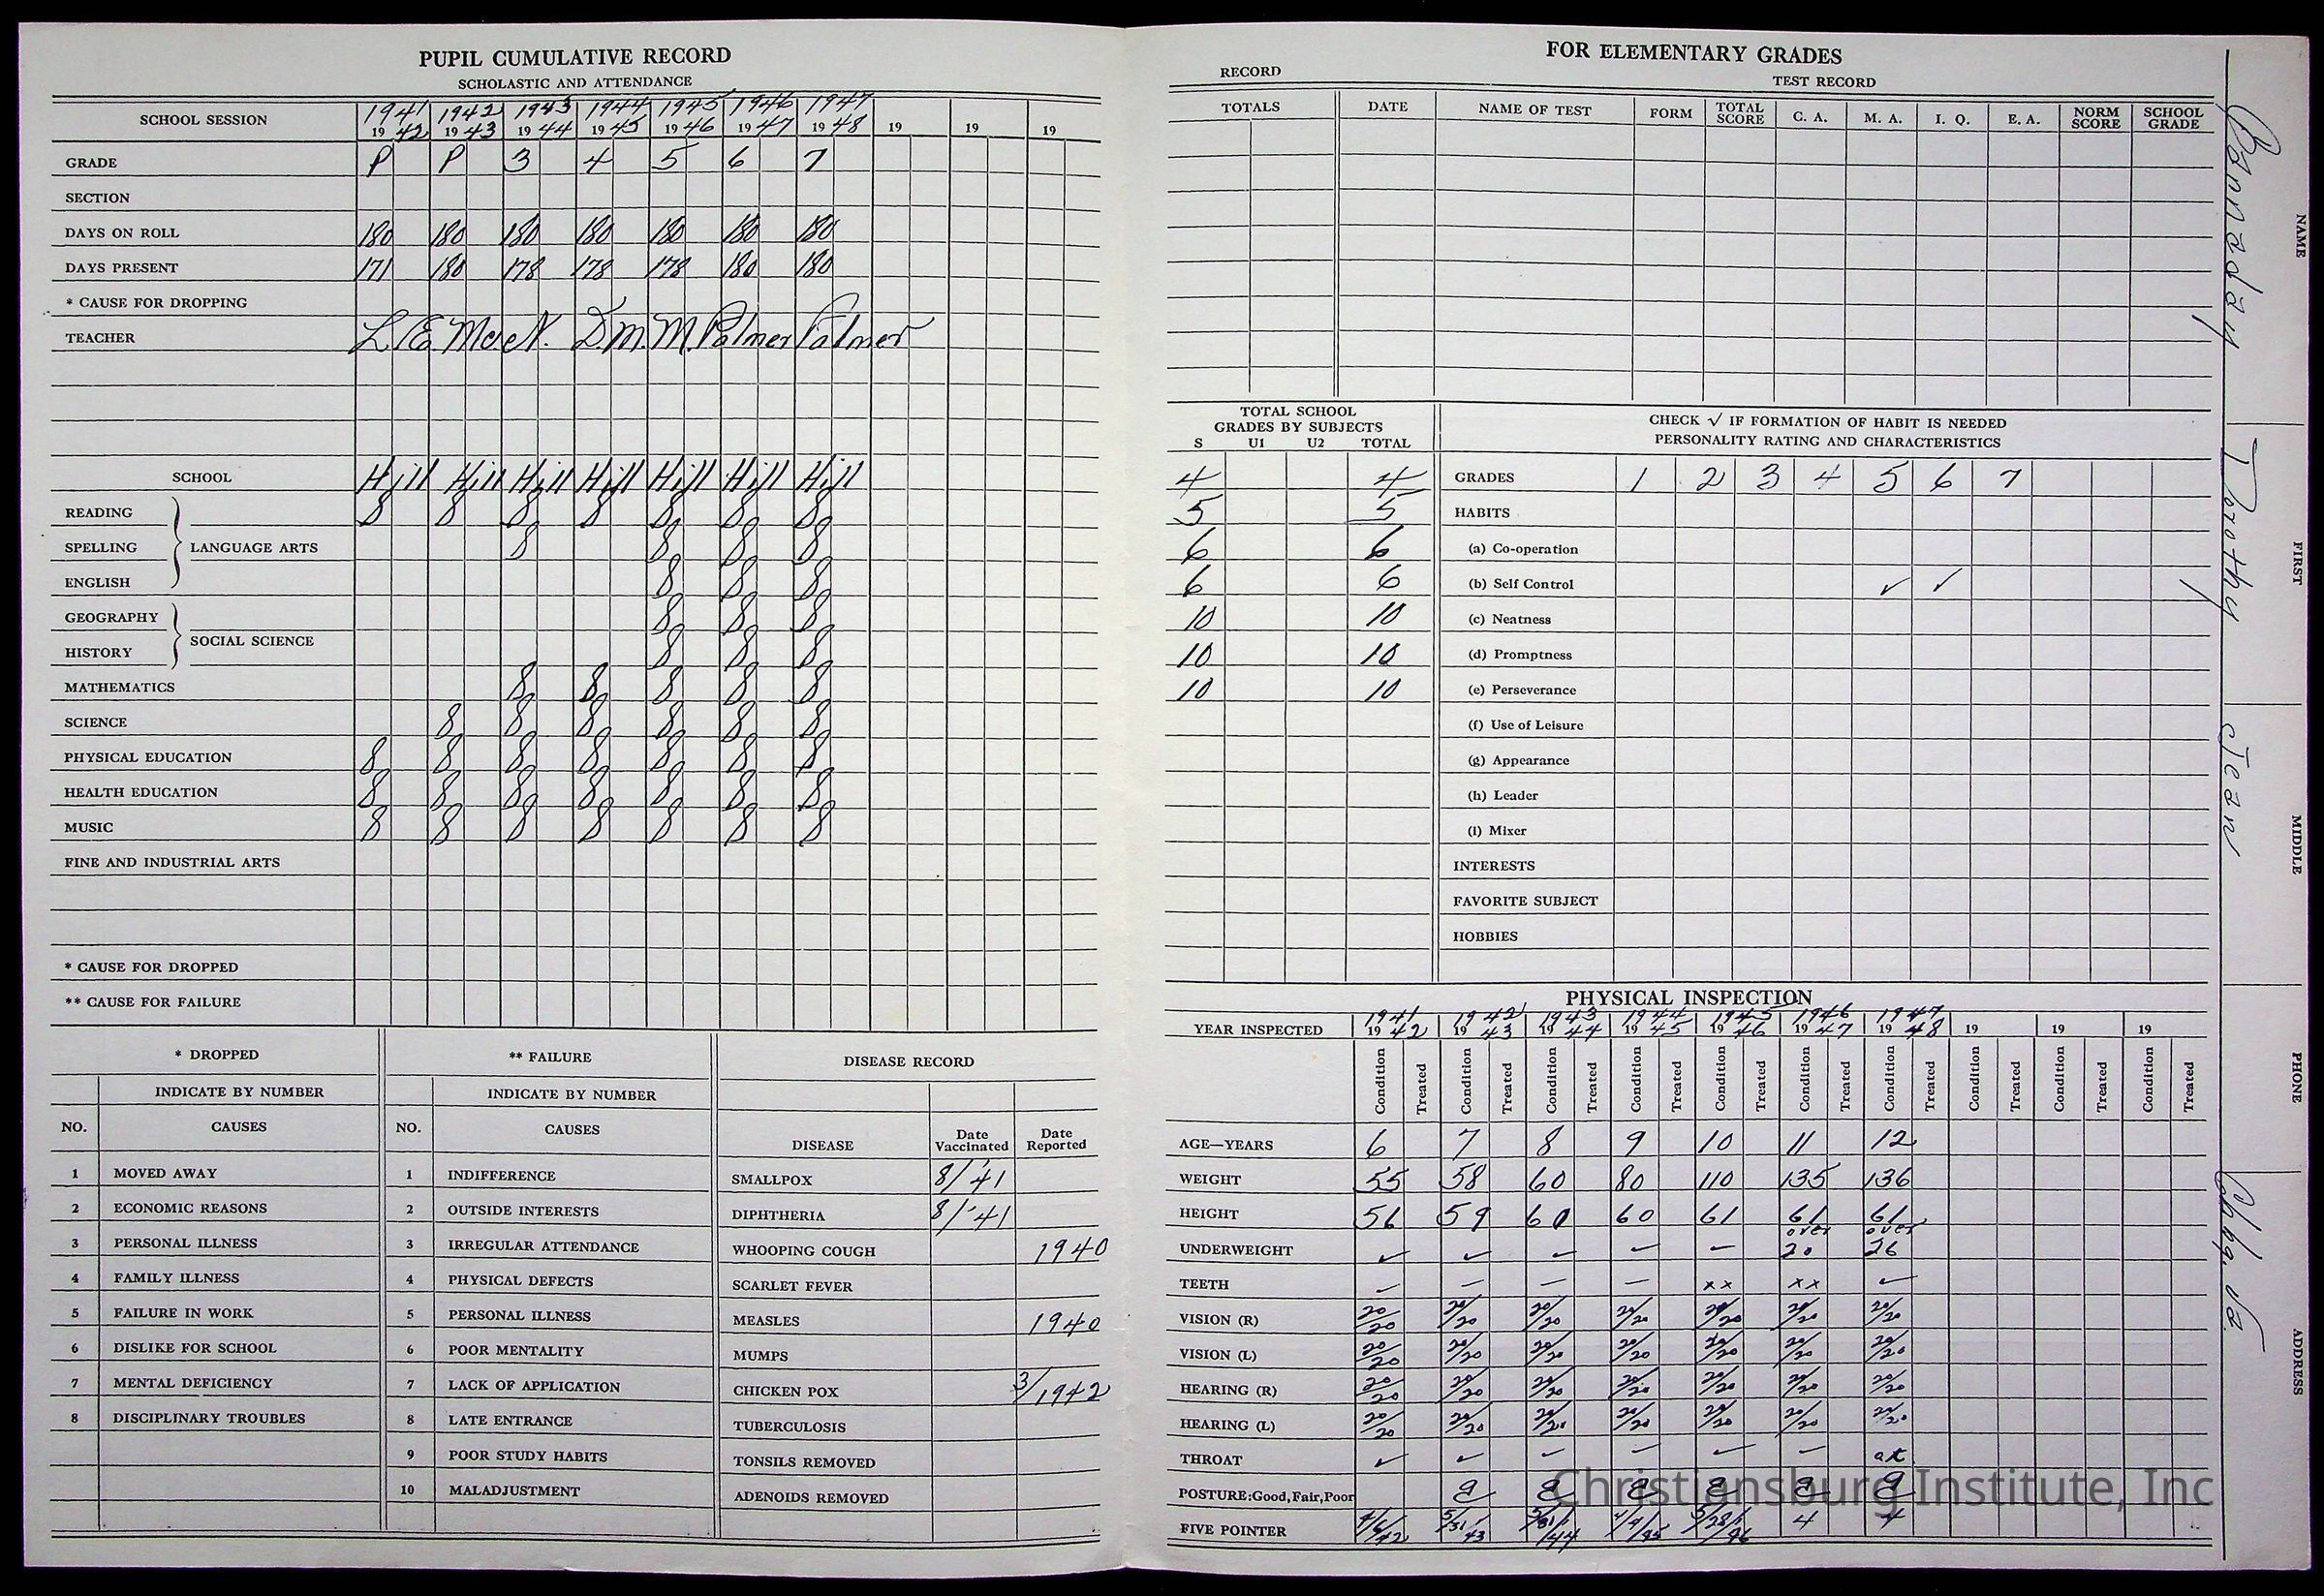 PUPIL CUMULATIVE RECORD
SCHOLASTIC AND ATTENDANCE
SCHOOL SESSION 1941 1942 1943 1944 1945 1946 1947
19 42 19 43 19 44 19 45 19 46 19 47 19 48 19 19 19
GRADE P P 3 4 5 6 7
SECTION
DAYS ON ROLL 180 180 180 180 180 180 180
DAYS PRESENT 171 180 178 178 178 180 180
* CAUSE FOR DROPPING
TEACHER L E D.M. M. Palmer Palmer
SCHOOL Hill Hill Hill Hill Hill Hill Hill
READING 8 8 8 8 8 8 8
SPELLING LANGUAGE ARTS 8 8 8 8
ENGLISH 8 8 8
GEOGRAPHY 8 8 8
SOCIAL SCIENCE
HISTORY 8 8 8
MATHEMATICS 8 8 8 8 8
SCIENCE 8 8 8 8 8 8
PHYSICAL EDUCATION 8 8 8 8 8 8 8
HEALTH EDUCATION 8 8 8 8 8 8 8
MUSIC 8 8 8 8 8 8 8
FINE AND INDUSTRIAL ARTS
* CAUSE FOR DROPPED
** CAUSE FOR FAILURE
* DROPPED
INDICATE BY NUMBER
NO. CAUSES
1 MOVED AWAY
2 ECONOMIC REASONS
3 PERSONAL ILLNESS
4 FAMILY ILLNESS
5 FAILURE IN WORK
6 DISLIKE FOR SCHOOL
7 MENTAL DEFICIENCY
8 DISCIPLINARY TROUBLES
** FAILURE
INDICATE BY NUMBER
NO. CAUSES
1 INDIFFERENCE
2 OUTSIDE INTERESTS
3 IRREGULAR ATTENDANCE
4 PHYSICAL DEFECTS
5 PERSONAL ILLNESS
6 POOR MENTALITY
7 LACK OF APPLICATION
8 LATE ENTRANCE
9 POOR STUDY HABITS
10 MALADJUSTMENT
DISEASE RECORD
DISEASE Date Vaccinated Date Reported
SMALLPOX 8/'41
DIPHTHERIA 8/'41
WHOOPING COUGH 1940
SCARLET FEVER
MEASLES 1940
MUMPS
CHICKEN POX 3/1942
TUBERCULOSIS
TONSILS REMOVED
ADENOIDS REMOVED
FOR ELEMENTARY GRADES
RECORD TEST RECORD
TOTALS DATE NAME OF TEST FORM TOTAL SCORE C. A. M. A. I. Q. E. A. NORM SCORE SCHOOL GRADE
TOTAL SCHOOL
GRADES BY SUBJECTS
S U1 U2 TOTAL
4 4
5 5
6 6
6 6
10 10
10 10
10 10
CHECK √ IF FORMATION OF HABIT IS NEEDED
PERSONALITY RATING AND CHARACTERISTICS
GRADES 1 2 3 4 5 6 7
HABITS
(a) Co-operation
(b) Self Control ✓ ✓
(c) Neatness
(d) Promptness
(e) Perseverance
(f) Use of Leisure
(g) Appearance
(h) Leader
(i) Mixer
INTERESTS
FAVORITE SUBJECT
HOBBIES
PHYSICAL INSPECTION
1941 1942 1943 1944 1945 1946 1947
YEAR INSPECTED 19 42 19 43 19 44 19 45 19 46 19 47 19 48 19 19 19
Condition Treated Condition Treated Condition Treated Condition Treated Condition Treated Condition Treated Condition Treated Condition Treated Condition Treated Condition Treated
AGE—YEARS 6 7 8 9 10 11 12
WEIGHT 55 58 60 80 110 135 136
HEIGHT 56 59 60 60 61 61 61
over over
UNDERWEIGHT ✓ ✓ ✓ ✓ ✓ 20 26
TEETH ✓ ✓ ✓ ✓ xx xx ✓
VISION (R) 20/20 20/20 20/20 20/20 20/20 20/20 20/20
VISION (L) 20/20 20/20 20/20 20/20 20/20 20/20 20/20
HEARING (R) 20/20 20/20 20/20 20/20 20/20 20/20 20/20
HEARING (L) 20/20 20/20 20/20 20/20 20/20 20/20 20/20
THROAT ✓ ✓ ✓ ✓ ✓ ✓
POSTURE: Good, Fair, Poor g g g g g g
FIVE POINTER 5/31/43 5/31/44 5/28/46 4 4
NAME FIRST MIDDLE PHONE ADDRESS
Cannaday Dorothy Jean Chbg. Va.
Christiansburg Institute, Inc